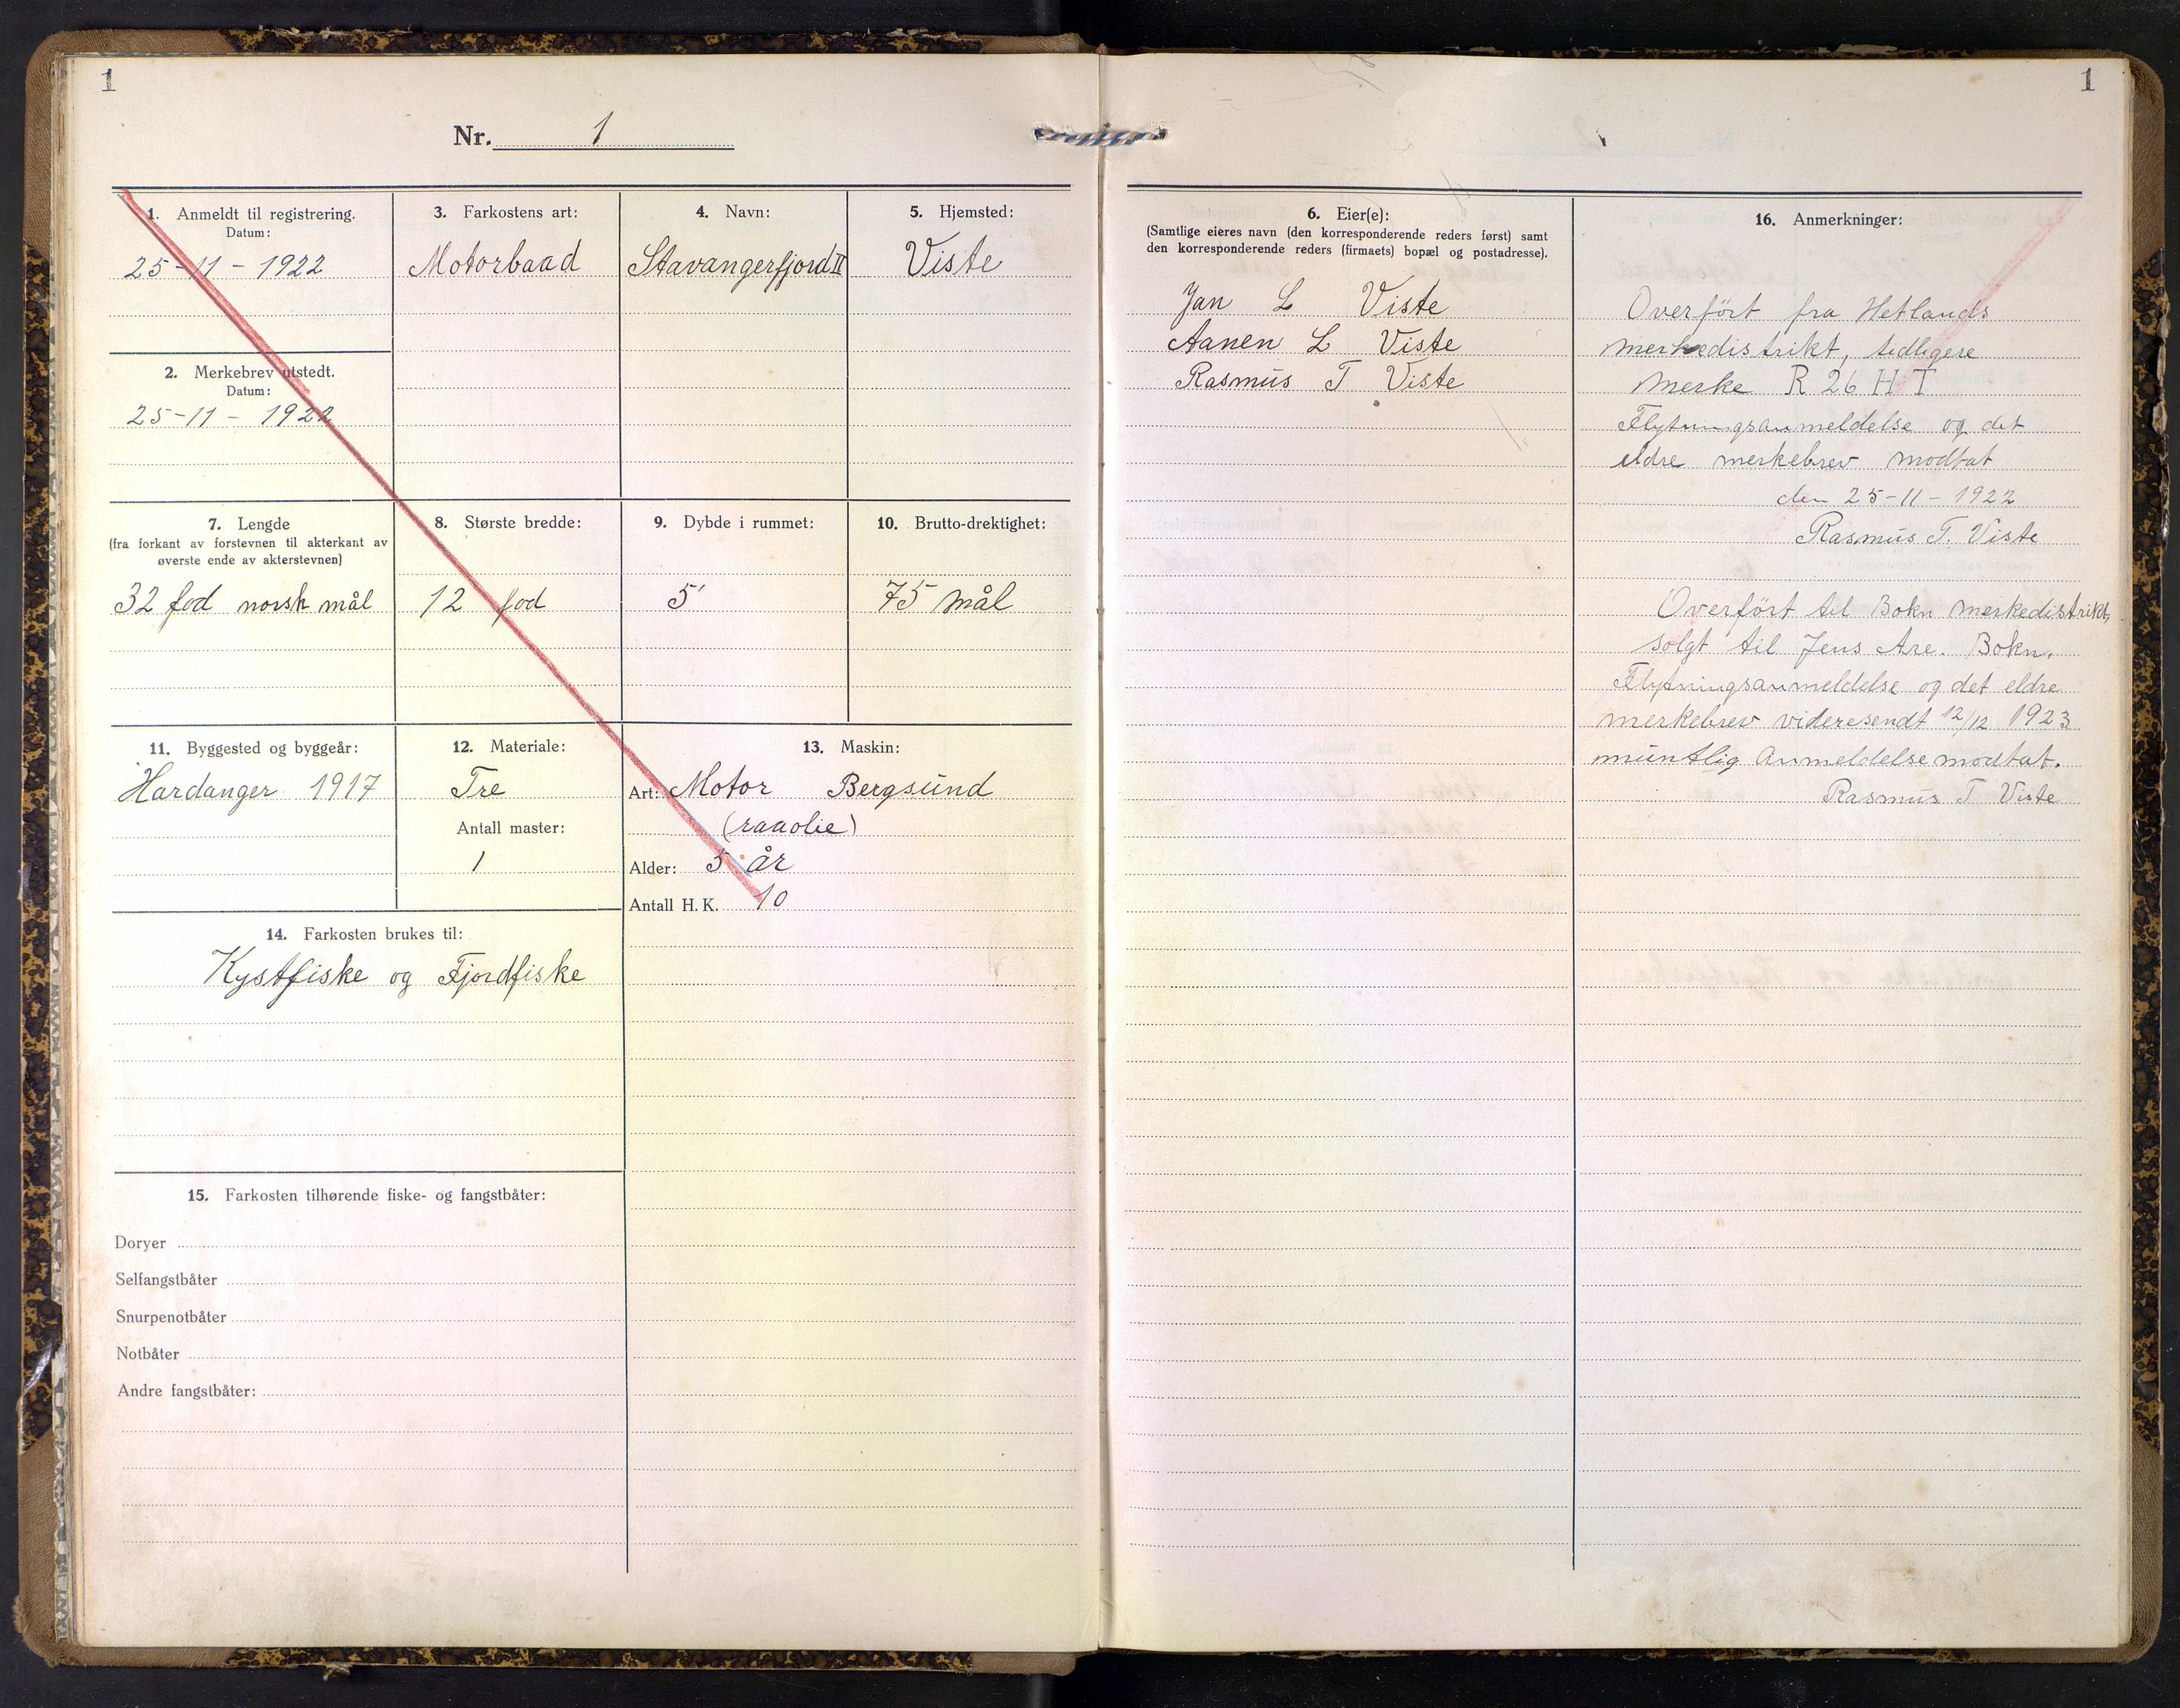 1
Nr. 1
1. Anmeldt til registrering.
Datum:
25-11-1922
2. Merkebrev utstedt.
Datum:
25-11-1922
3. Farkostens art:
Motorbaad
4. Navn:
Stavangerfjord II
5. Hjemsted:
Viste
7. Lengde
(fra forkant av forstevnen til akterkant av
øverste ende av akterstevnen)
32 fod norsk mål
8. Største bredde:
12 fod
9. Dybde i rummet:
5'
10. Brutto-drektighet:
75 mål
11. Byggested og byggeår:
Hardanger 1917
12. Materiale:
Tre
Antall master:
1
13. Maskin:
Art: Motor Bergsund
(raaolie)
Alder: 5 år
Antall H. K. 10
14. Farkosten brukes til:
Kystfiske og Fjordfiske
15. Farkosten tilhørende fiske- og fangstbåter:
Doryer
Selfangstbåter
Snurpenotbåter
Notbåter
Andre fangstbåter:
1
6. Eier(e):
(Samtlige eieres navn (den korresponderende reders først) samt
den korresponderende reders (firmaets) bopæl og postadresse).
Jan L Viste
Aanen L Viste
Rasmus T Viste
16. Anmerkninger:
Overført fra Hetlands
merkedistrikt, tidligere
merke R 26 H T
Flytningsanmeldelse og det
eldre merkebrev modtat
den 25-11-1922
Rasmus T. Viste
Overført til Bokn merkedistrikt,
solgt til Jens Are. Bokn.
Flytningsanmeldelse og det eldre
merkebrev videresendt 12/12 1923
muntlig anmeldelse modtat.
Rasmus T Viste